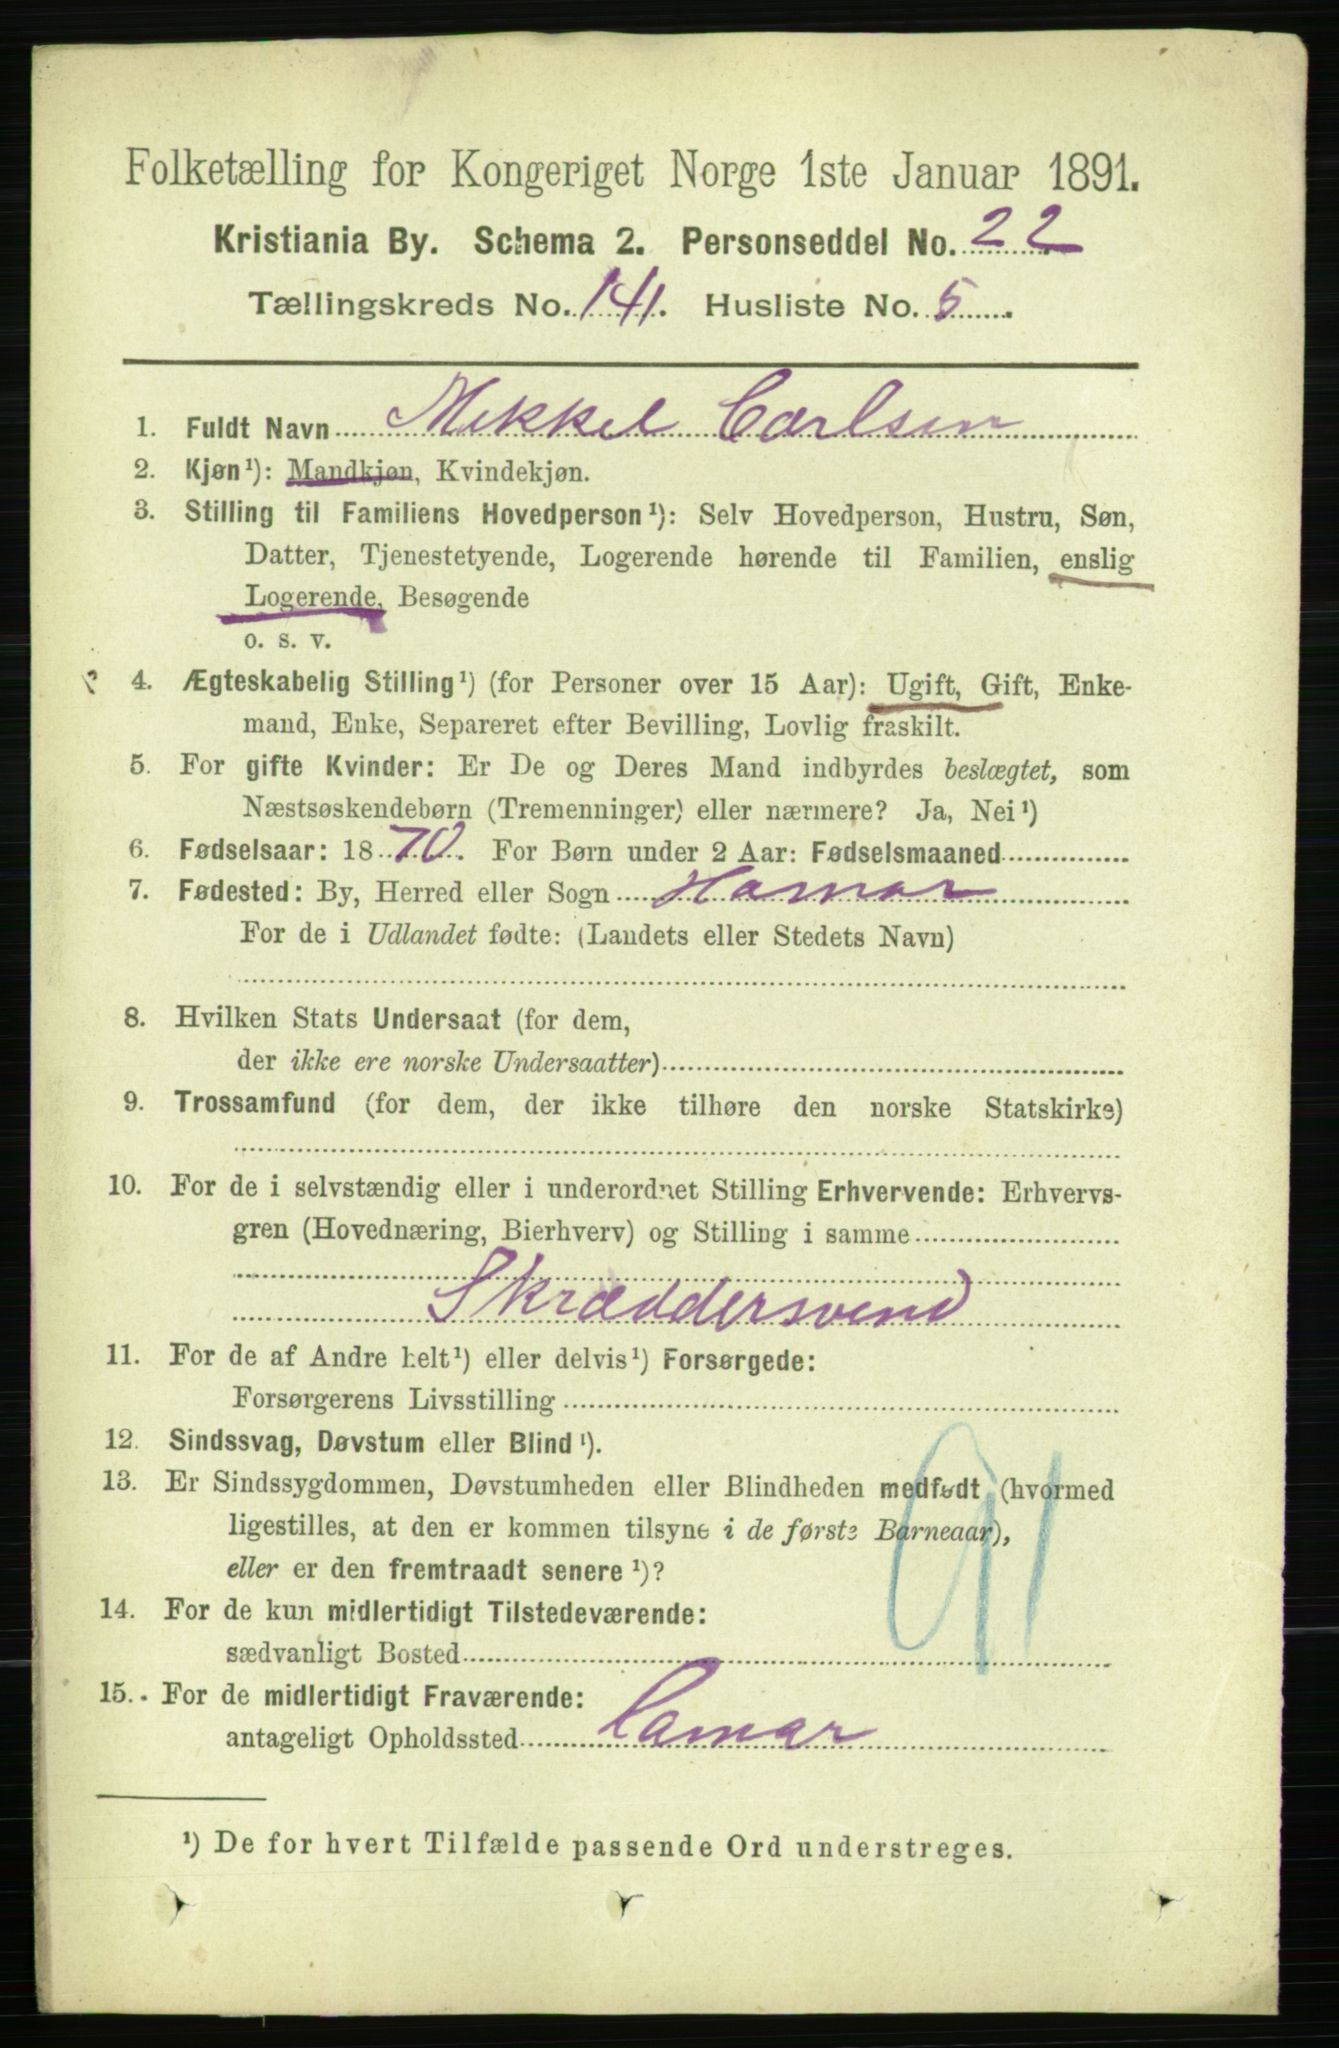 Folketælling for Kongeriget Norge 1ste Januar 1891.
Kristiania By. Schema 2. Personseddel No. 22
Tællingskreds No. 141. Husliste No. 5
1. Fuldt Navn Mekkel Carlsen
2. Kjøn¹): Mandkjøn, Kvindekjøn.
3. Stilling til Familiens Hovedperson¹): Selv Hovedperson, Hustru, Søn,
Datter, Tjenestetyende, Logerende hørende til Familien, enslig
Logerende, Besøgende
o. s. v.
4. Ægteskabelig Stilling¹) (for Personer over 15 Aar): Ugift, Gift, Enke-
mand, Enke, Separeret efter Bevilling, Lovlig fraskilt.
5. For gifte Kvinder: Er De og Deres Mand indbyrdes beslægtet, som
Næstsøskendebørn (Tremenninger) eller nærmere? Ja, Nei¹)
6. Fødselsaar: 1870. For Børn under 2 Aar: Fødselsmaaned
7. Fødested: By, Herred eller Sogn Hamar
For de i Udlandet fødte: (Landets eller Stedets Navn)
8. Hvilken Stats Undersaat (for dem,
der ikke ere norske Undersaatter)
9. Trossamfund (for dem, der ikke tilhøre den norske Statskirke)
10. For de i selvstændig eller i underordnet Stilling Erhvervende: Erhvervs-
gren (Hovednæring, Bierhverv) og Stilling i samme
Skræddersvend
11. For de af Andre helt¹) eller delvis¹) Forsørgede:
Forsørgerens Livsstilling
12. Sindssvag, Døvstum eller Blind¹).
13. Er Sindssygdommen, Døvstumheden eller Blindheden medfødt (hvormed
ligestilles, at den er kommen tilsyne i de første Barneaar),
eller er den fremtraadt senere¹)?
91
14. For de kun midlertidigt Tilstedeværende:
sædvanligt Bosted
15. For de midlertidigt Fraværende:
antageligt Opholdssted Hamar
¹) De for hvert Tilfælde passende Ord understreges.